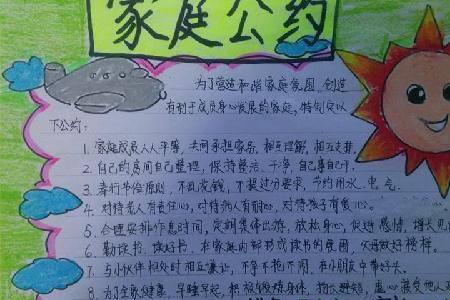 家庭公约
为了营造和谐家庭氛围，创造
有利于成员身心发展的家庭，特制定以
下公约：
1. 家庭成员人人平等，共同承担家务，相互理解，相互支持。
2. 自己的房间自己整理，保持整洁、干净，自己事自己干。
3. 奉行节俭原则，不乱花钱，不提过分要求，节约用水、电、气。
4. 对待老人有责任心，对待病人有耐心，对待孩子有爱心。
5. 合理安排作息时间，定期集体出游，放松身心，促进感情，增长见
6. 勤读书，读好书，在家庭内部形成读书的氛围，父母做好榜样。
7. 与小伙伴相处时相互谦让，不争不抢不闹，在小朋友中带好头。
8. 为了全家健康，早睡早起，积极锻炼身体，扬长避短，虚心接受他人